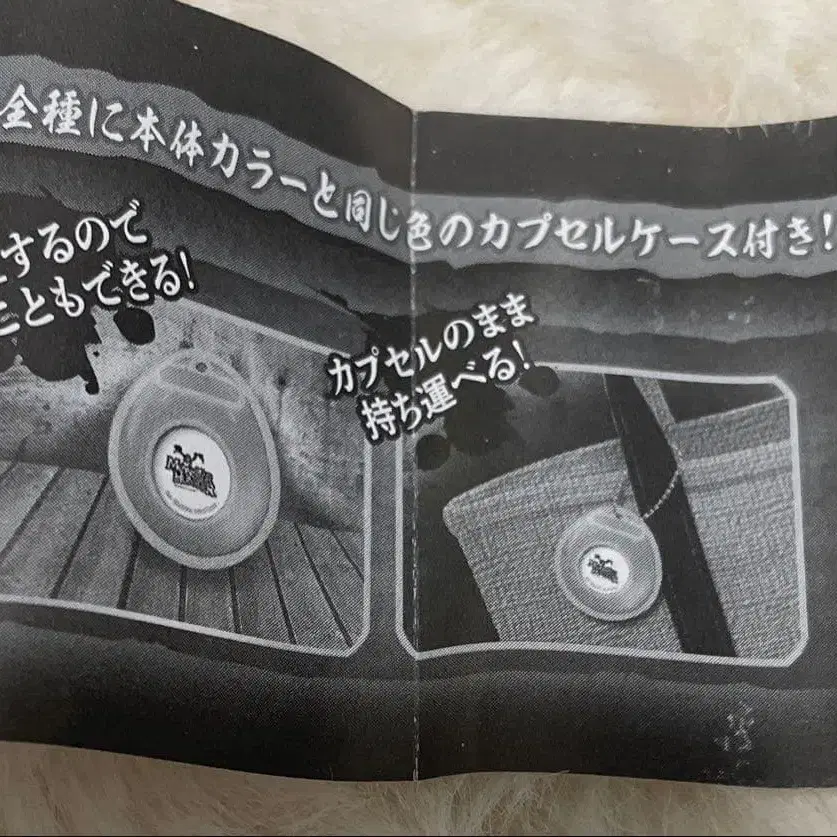 全種に本体カラーと同じ色のカプセルケース付き!
するので
こともできる!
カプセルのまま
持ち運べる!
MONSTER
HUNTER